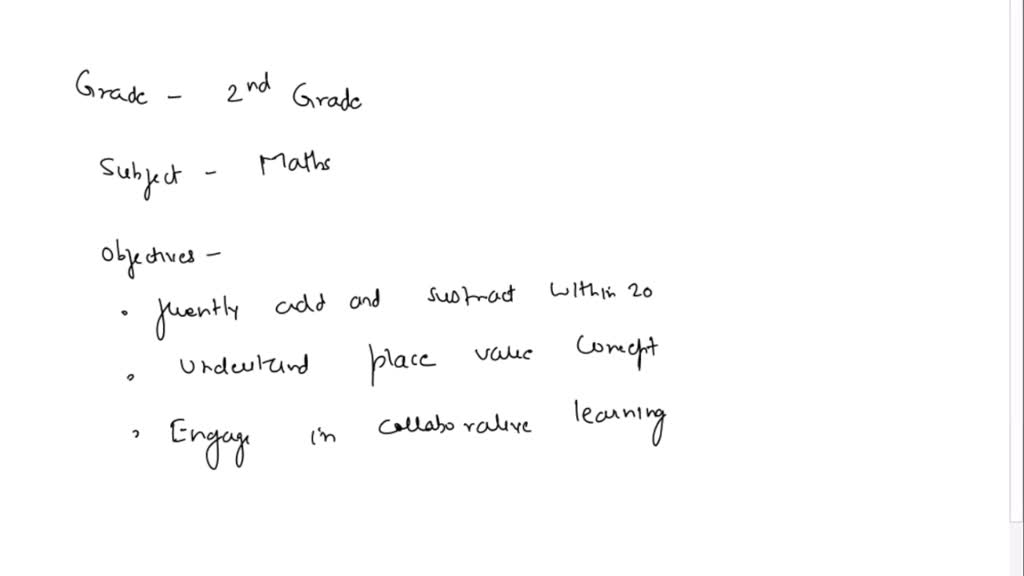 Grade - 2nd Grade
Subject - Maths
Objectives -
• fluently add and sustract within 20
• understand place value concept
• Engage in collaborative learning